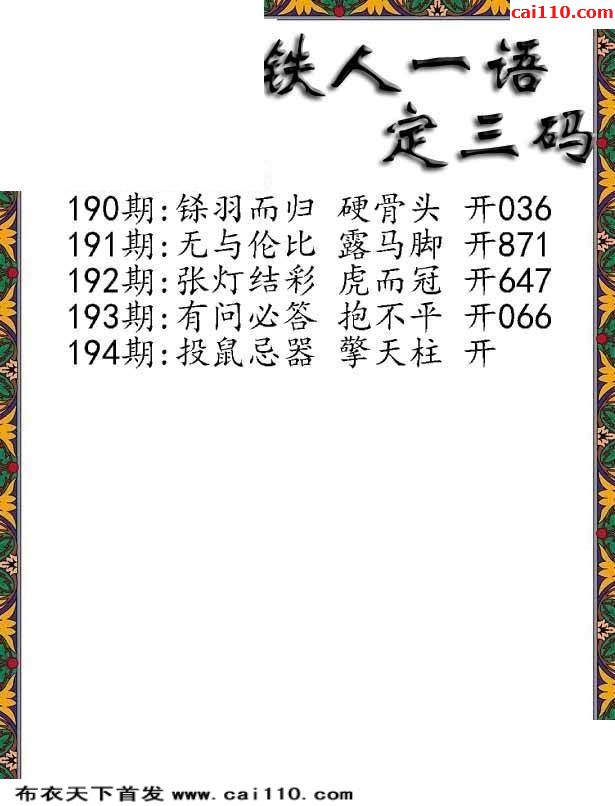 cai110.com
铁人一语
定三码
190期:铩羽而归 硬骨头 开036
191期:无与伦比 露马脚 开871
192期:张灯结彩 虎而冠 开647
193期:有问必答 抱不平 开066
194期:投鼠忌器 擎天柱 开
布衣天下首发 www.cai110.com